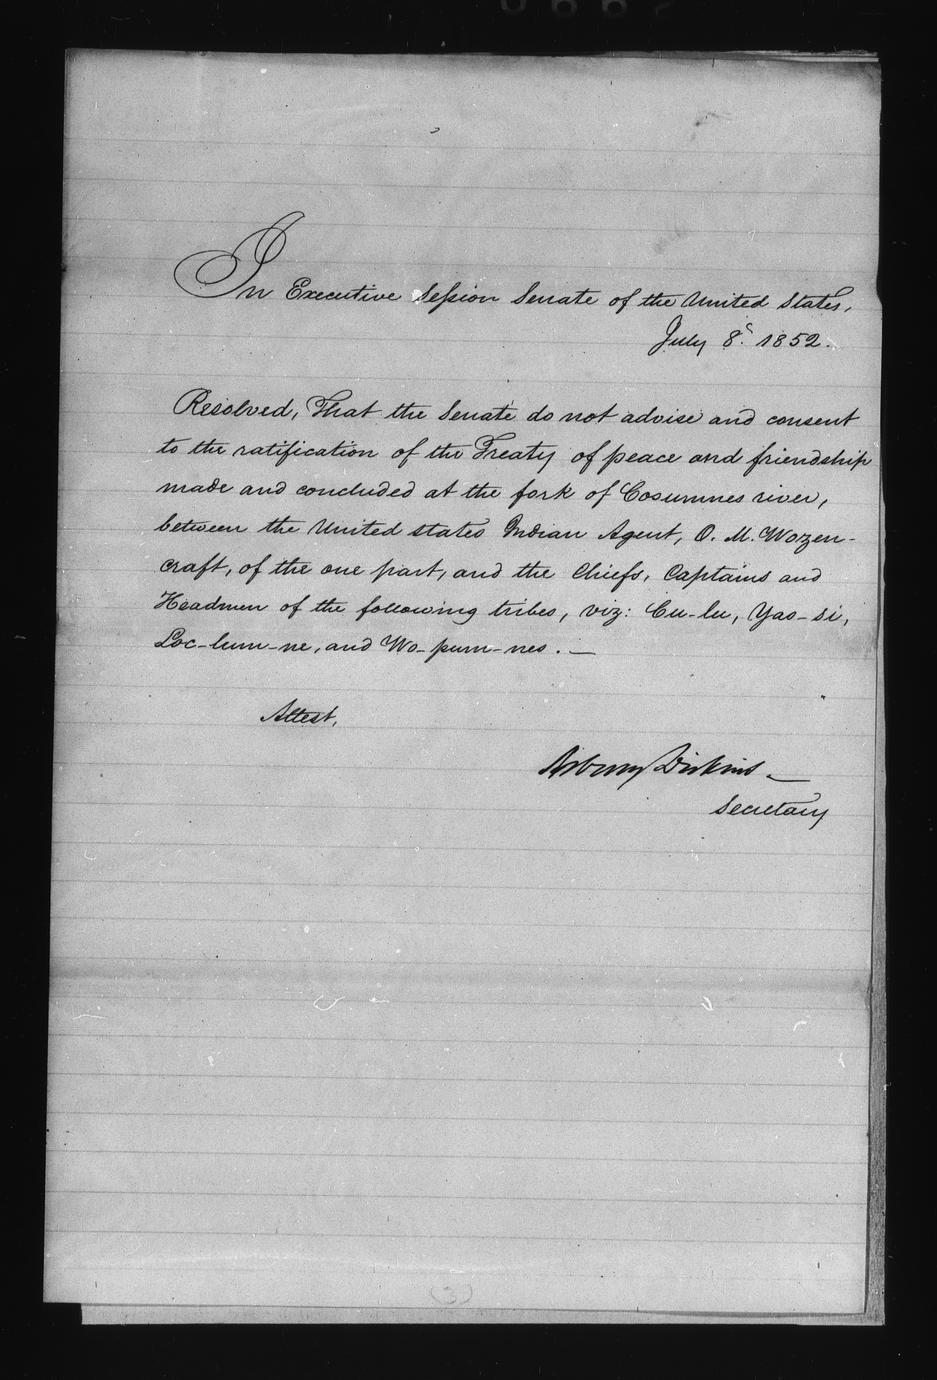 In Executive Session Senate of the United States,
July 8. 1852.
Resolved, That the Senate do not advise and consent
to the ratification of the Treaty of peace and friendship
made and concluded at the fork of Cosumnes river,
between the United States Indian Agent, O. M. Wozen-
craft, of the one part, and the Chiefs, Captains and
Headmen of the following tribes, viz: Cu-lu, Yas-si,
Loc-lum-ne, and Wo-pum-nes. —
Attest,
Asbury Dickins —
Secretary
(3)